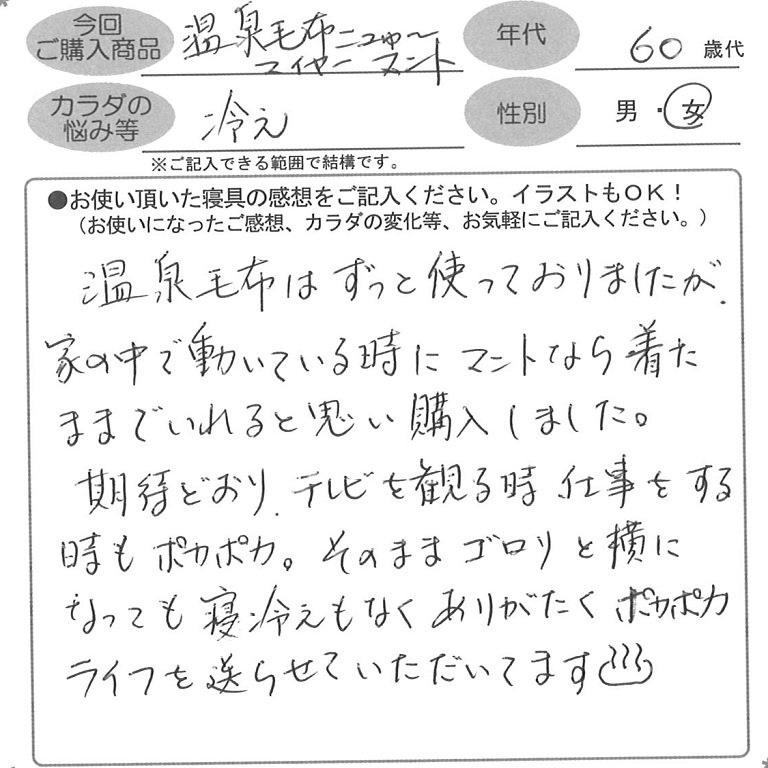 今回
ご購入商品
温泉毛布ニューー
マイヤー マント
年代
60 歳代
カラダの
悩み等
冷え
性別
男・女
※ご記入できる範囲で結構です。
●お使い頂いた寝具の感想をご記入ください。イラストもOK!
(お使いになったご感想、カラダの変化等、お気軽にご記入ください。)
温泉毛布はずっと使っておりましたが、
家の中で動いている時にマントなら着た
ままでいれると思い購入しました。
期待どおり、テレビを観る時仕事をする
時もポカポカ。そのままゴロリと横に
なっても寝冷えもなくありがたくポカポカ
ライフを送らせていただいてます♨